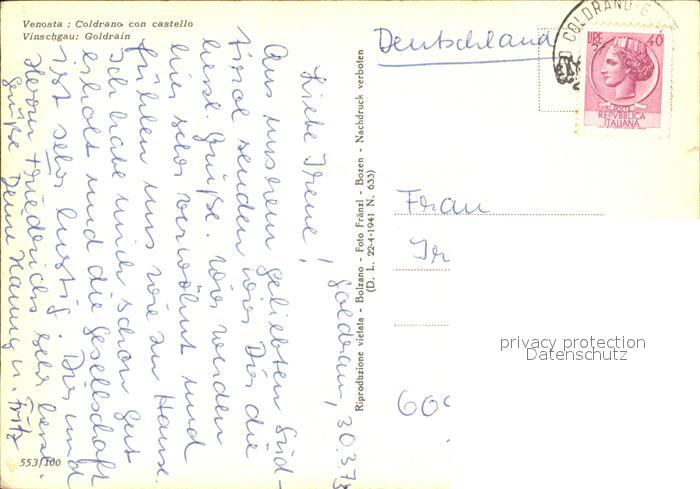 Venosta : Coldrano con castello
Vinschgau: Goldrain
Goldrain, 30.3.73
Liebe Irene!
Aus unserem geliebten Süd-
tirol senden wir Dir die
herzl. Grüße. Wir werden
hier sehr verwöhnt und
fühlen uns wie zu Hause.
Ich habe mich schon gut
erholt und die Gesellschaft
ist sehr lustig. Dir und
Herrn Friederichs sehr herzl.
Grüße Deine Hanny u. Fritz
553/100
Riproduzione vietata - Bolzano - Foto Fränzl - Bozen - Nachdruck verboten
(D. L. 22-4-1941 N. 633)
Deutschland
COLDRANO
LIRE 40
POSTE
REPVBBLICA
ITALIANA
Frau
Ir
privacy protection
Datenschutz
60